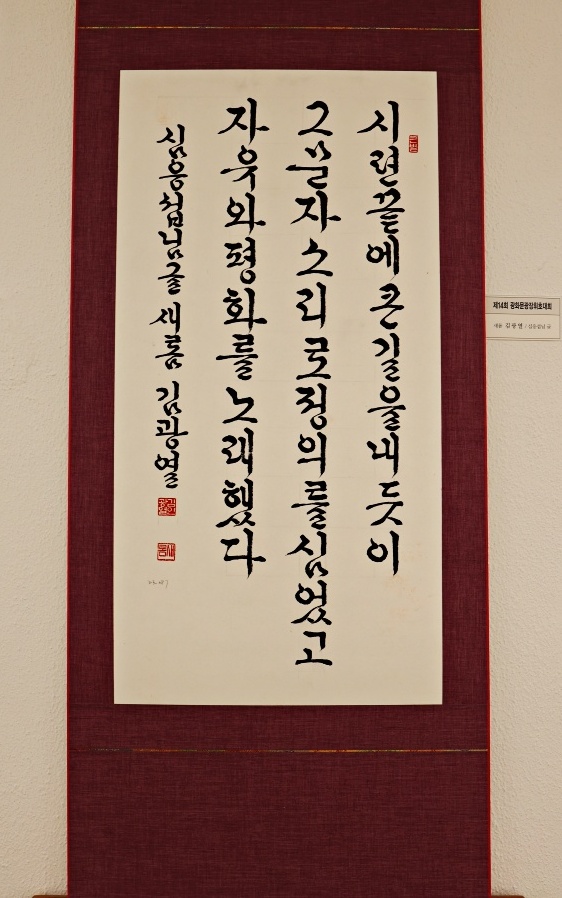 시련끝에큰길을내듯이
그 자소리로정의를심었고
자유와평화를노래했다
심응섭님글 새롬 김광열
제14회 광화문광장휘호대회
김광열 / 심응섭님 글